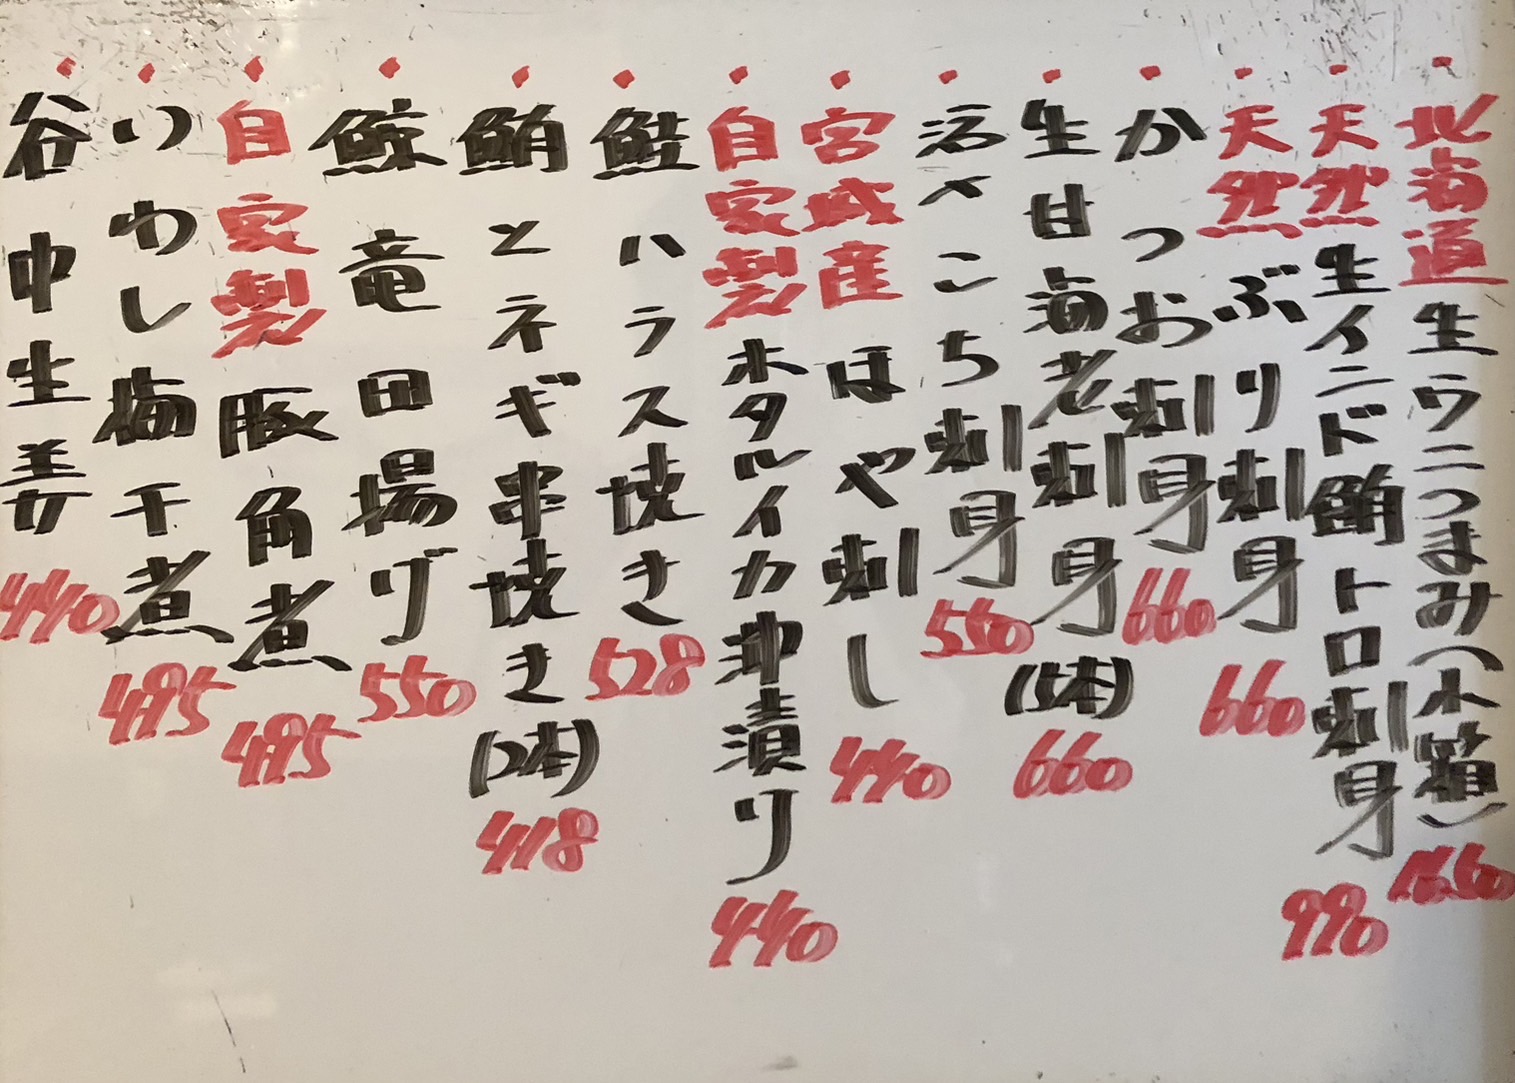 北海道生ウニつまみ(小箱)
1660
天然生インド鮪トロ刺身 990
天然ぶり刺身 660
かつお刺身 660
生甘海老刺身(5本) 660
活〆こち刺身 550
宮城産ほや刺し 440
自家製ホタルイカ沖漬り 440
鮭ハラス焼き 528
鮪とネギ串焼き(2本) 418
鯨竜田揚げ 550
自家製豚角煮 495
いわし梅干煮 495
谷中生姜 440